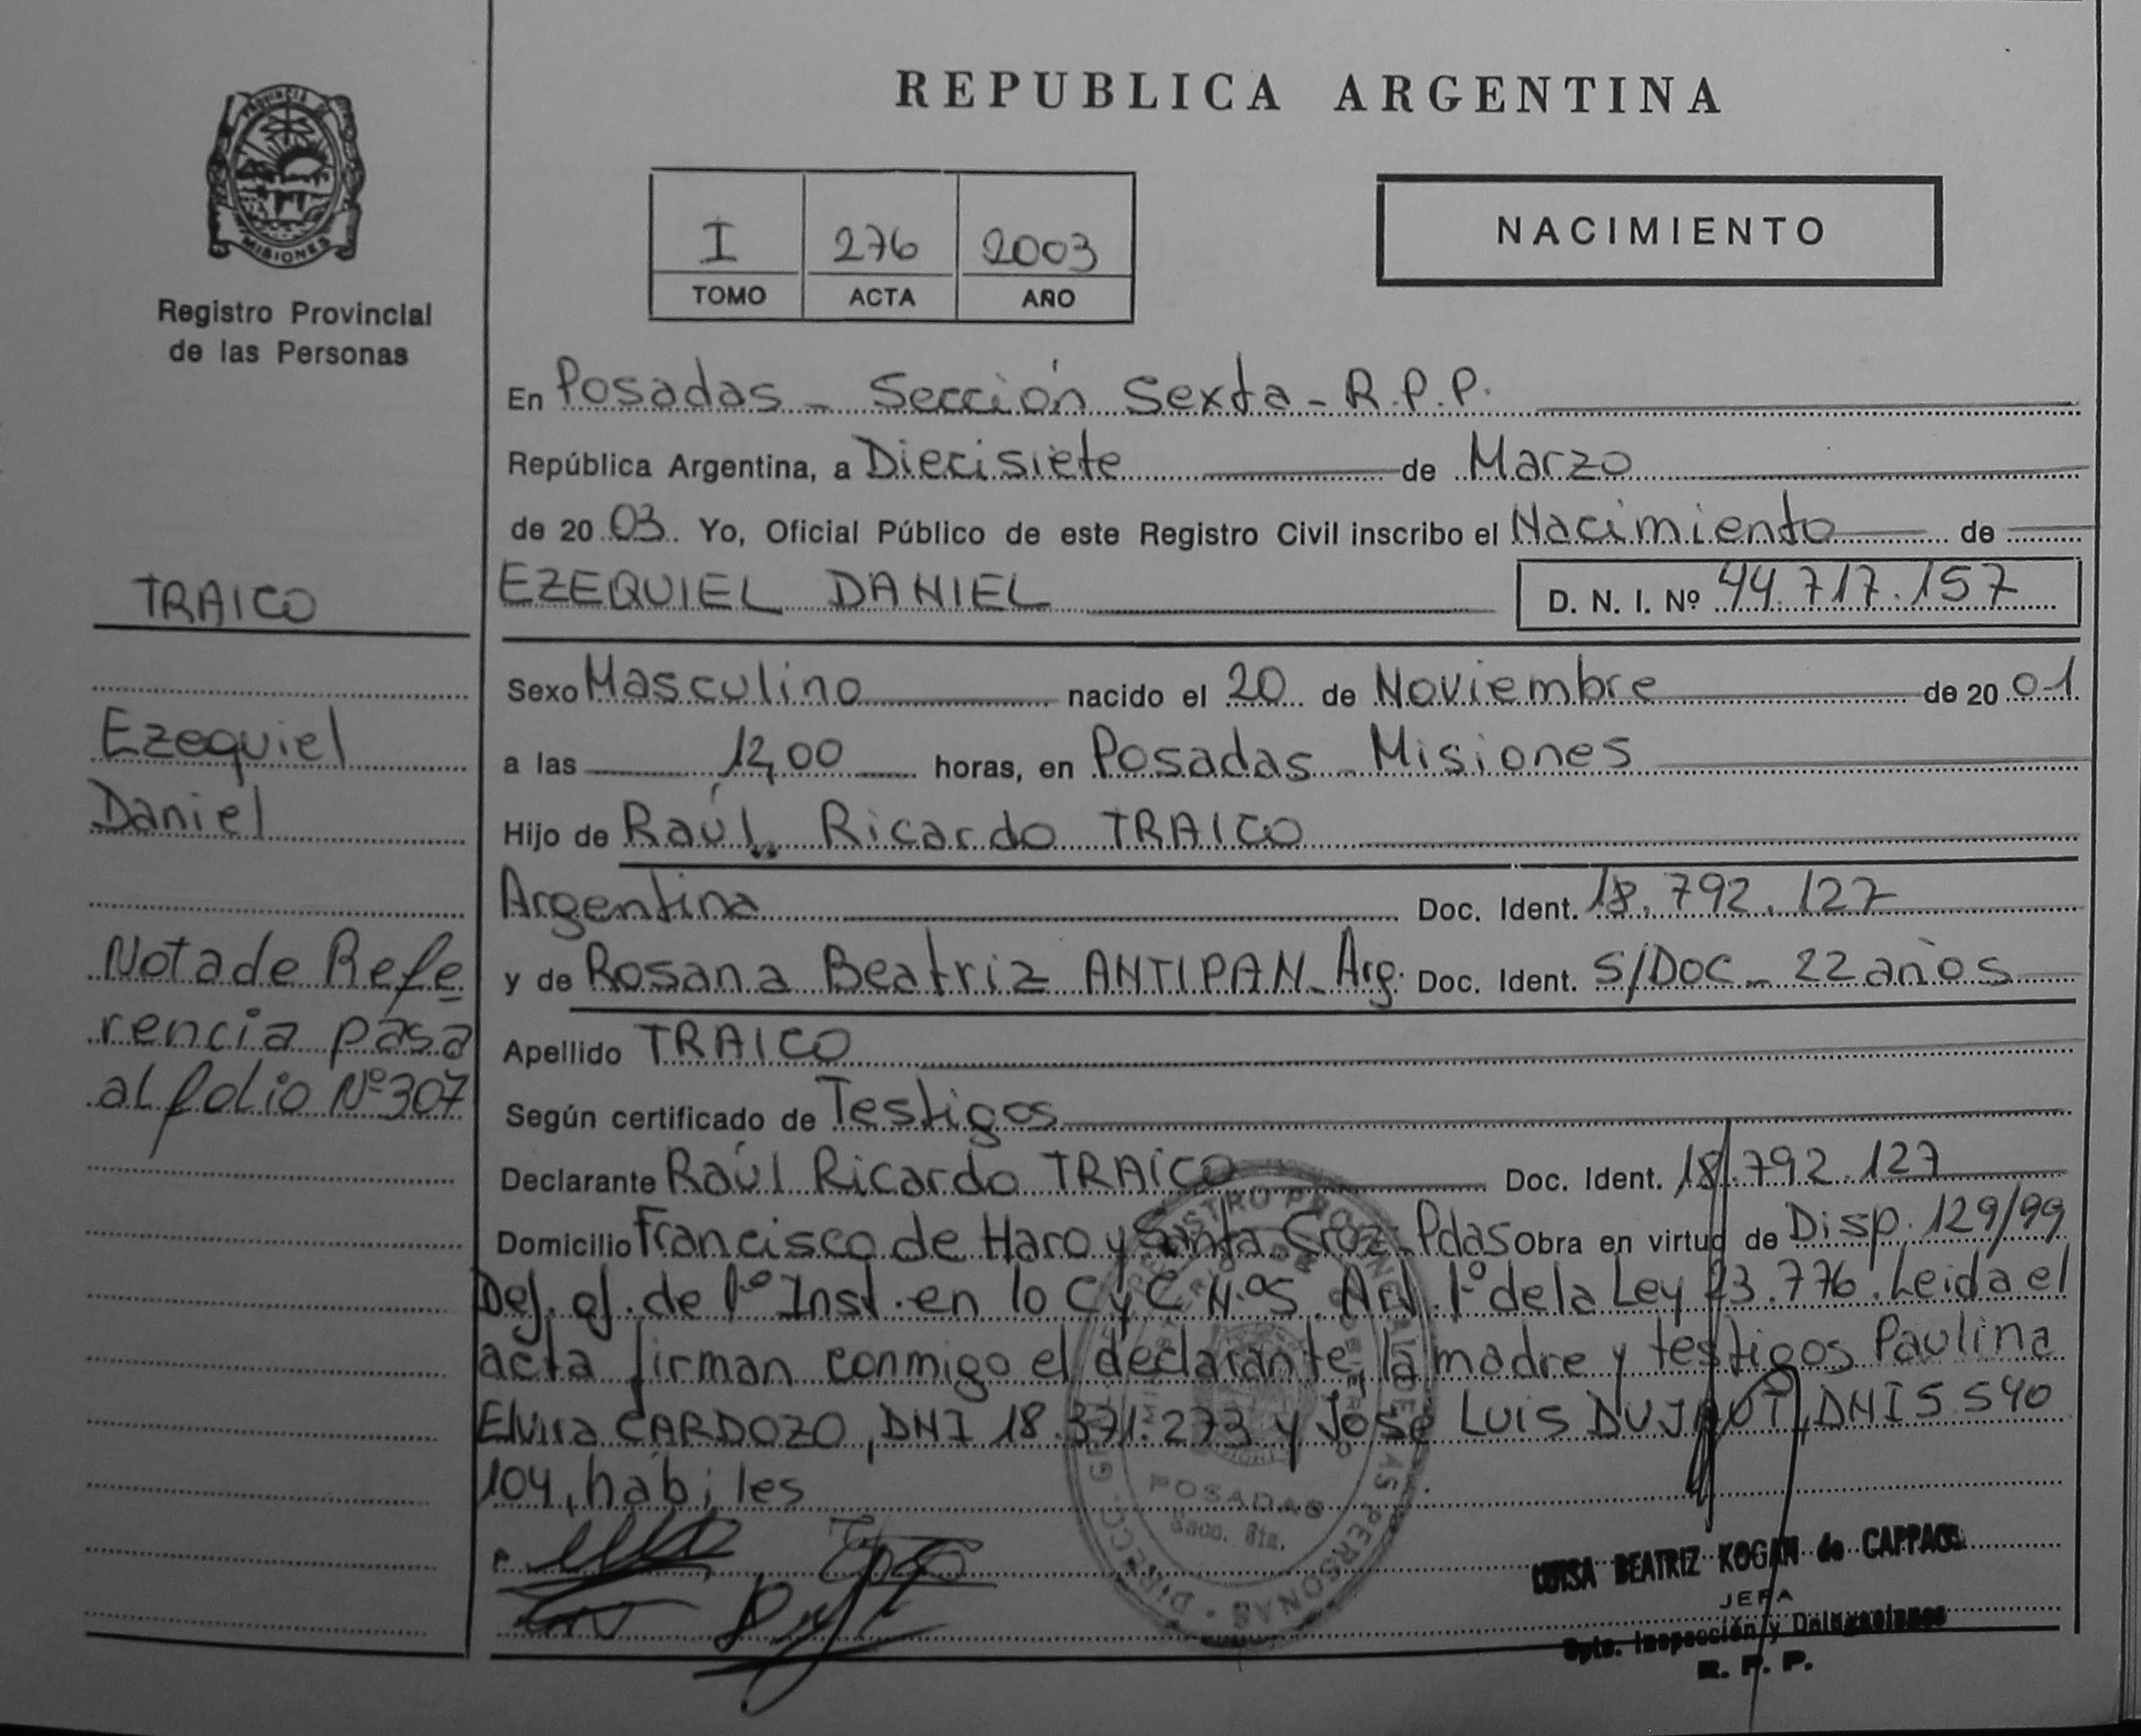 REPUBLICA ARGENTINA
PROVINCIA DE
MISIONES
Registro Provincial
de las Personas
I 276 2003
TOMO ACTA AÑO
NACIMIENTO
En Posadas - Sección Sexta - R.P.P.
República Argentina, a Diecisiete de Marzo
de 20 03 Yo, Oficial Público de este Registro Civil inscribo el Nacimiento de
TRAICO
EZEQUIEL DANIEL D. N. I. Nº 44.717.157
Sexo Masculino nacido el 20 de Noviembre de 20 01
Ezequiel
Daniel
a las 12,00 horas, en Posadas - Misiones
Hijo de Raúl Ricardo TRAICO
Argentina Doc. Ident. 18.792.127
y de Rosana Beatriz ANTIPAN - Arg. Doc. Ident. S/Doc - 22 años
Nota de Refe
rencia pasa
al folio Nº 307
Apellido TRAICO
Según certificado de Testigos
Declarante Raúl Ricardo TRAICO Doc. Ident. 18.792.127
Domicilio Francisco de Haro y Santa Cruz - Pdas Obra en virtud de Disp. 129/99
de 1º Inst. en lo C y C N.º5. Art. 1º de la Ley 23.776. Leida el
acta firman conmigo el declarante, la madre y testigos Paulina
Elvira CARDOZO, DNI 18.371.273 y José Luis DNI 5 540
104, hábiles
REGISTRO PROVINCIAL DE LAS PERSONAS
POSADAS
Secc. 6ta.
LUISA BEATRIZ KOGAN de CAPPAGS
JEFA
Dpto. Inspección y Delegaciones
R. P. P.